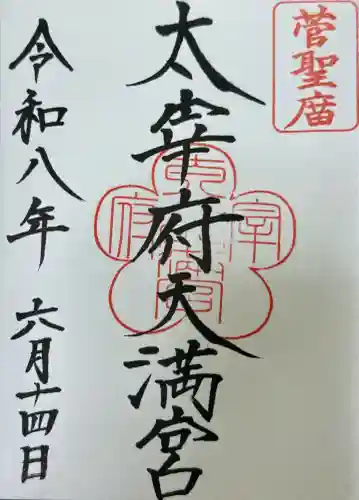 菅聖庿
太宰府天満宮
令和八年 六月十四日